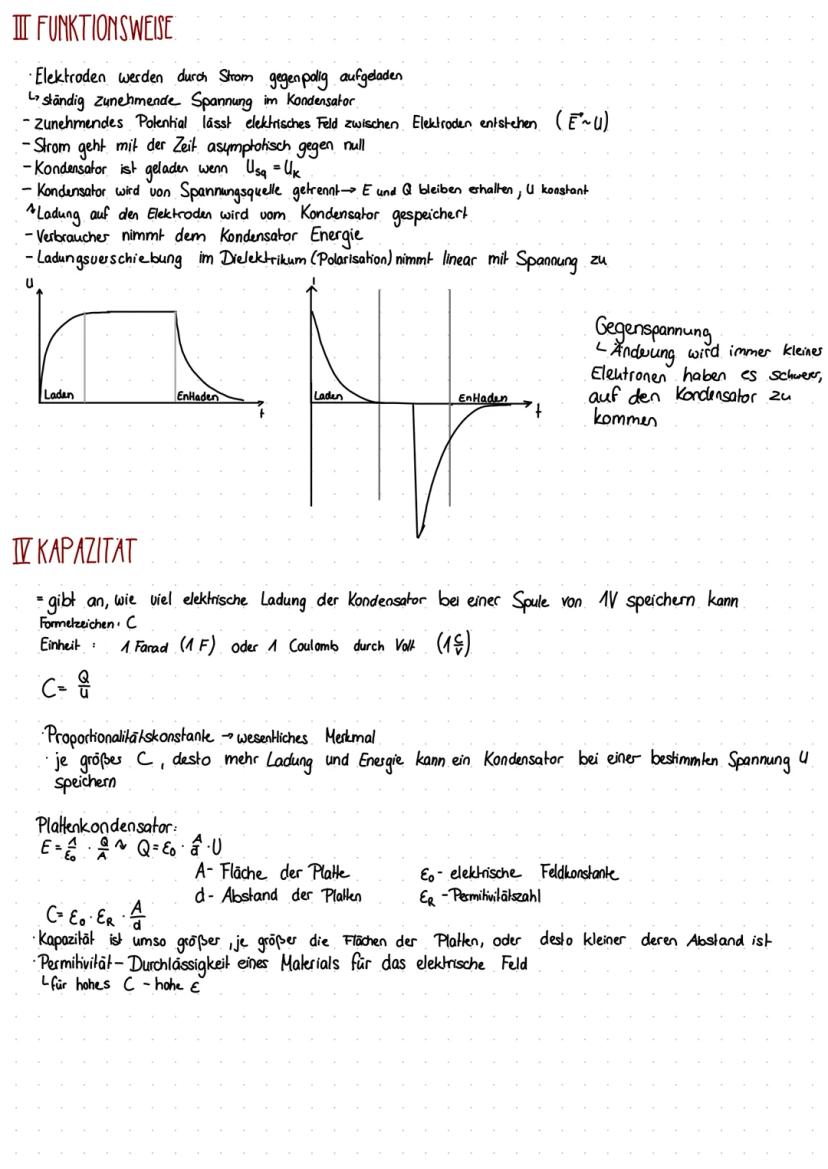 III FUNKTIONSWEISE
· Elektroden werden durch Strom gegenpolig aufgeladen
↳ ständig zunehmende Spannung im Kondensator
- zunehmendes Potential lässt elektrisches Feld zwischen Elektroden entstehen (E→~U)
- Strom geht mit der Zeit asymptotisch gegen null
- Kondensator ist geladen wenn U_SQ = U_K
- Kondensator wird von Spannungsquelle getrennt → E und Q bleiben erhalten, U konstant
↷ Ladung auf den Elektroden wird vom Kondensator gespeichert
- Verbraucher nimmt dem Kondensator Energie
- Ladungsverschiebung im Dielektrikum (Polarisation) nimmt linear mit Spannung zu
U
Laden
Entladen
t
I
Laden
Entladen
t
Gegenspannung
↳ Änderung wird immer kleines
Elektronen haben es schwer,
auf den Kondensator zu
kommen
IV KAPAZITAT
= gibt an, wie viel elektrische Ladung der Kondensator bei einer Spule von 1V speichern kann
Formelzeichen: C
Einheit : 1 Farad (1 F) oder 1 Coulomb durch Volt (1 C/V)
C= Q/U
· Proportionalitätskonstante → wesentliches Merkmal
· je größer C, desto mehr Ladung und Energie kann ein Kondensator bei einer bestimmten Spannung U
speichern
Plattenkondensator:
E = 1/ε₀ · Q/A ↷ Q = ε₀ · A/d · U
A- Fläche der Platte
ε₀ - elektrische Feldkonstante
d- Abstand der Platten
ε_R - Permitivitätszahl
C= ε₀ · ε_R · A/d
· Kapazität ist umso größer, je größer die Flächen der Platten, oder desto kleiner deren Abstand ist
· Permitivität – Durchlässigkeit eines Materials für das elektrische Feld
↳ für hohes C - hohe ε